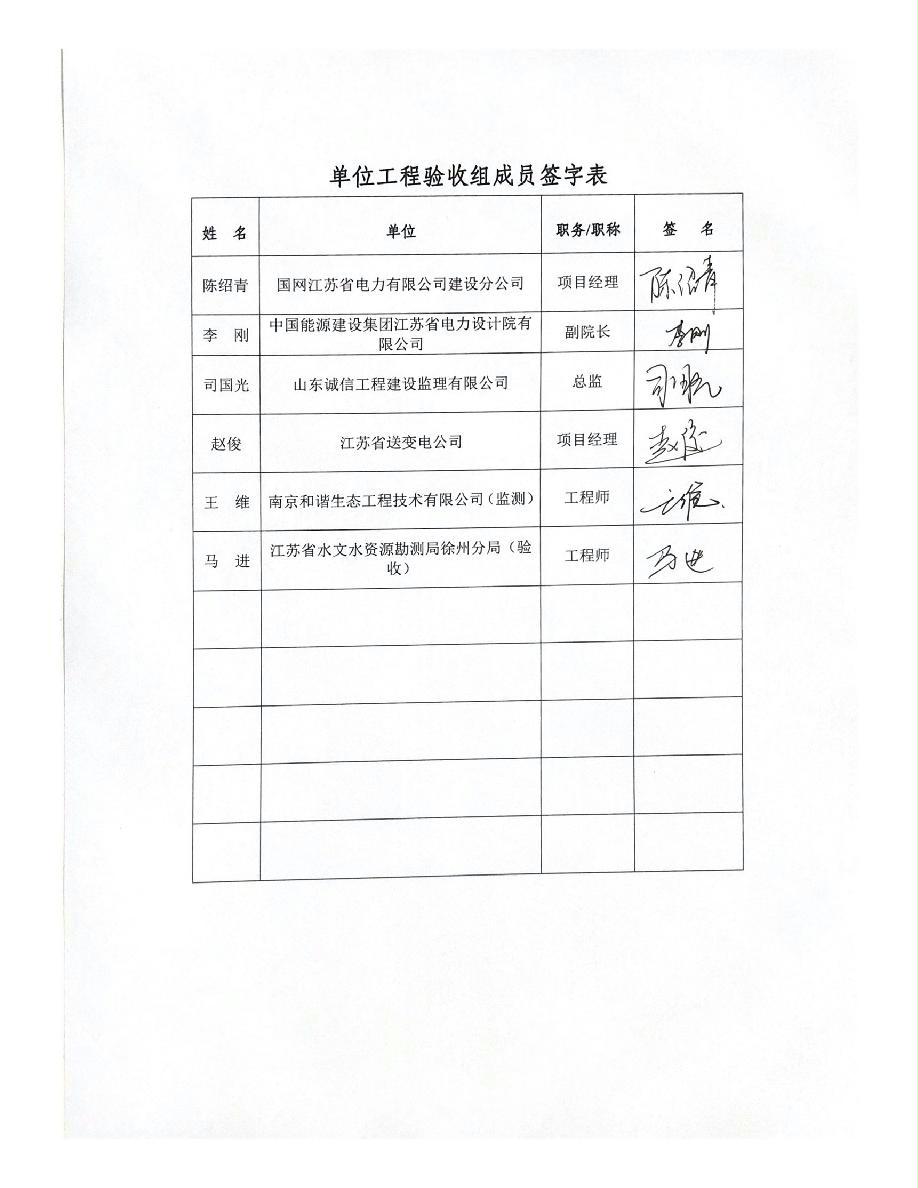 单位工程验收组成员签字表
姓 名 单位 职务/职称 签 名
陈绍青 国网江苏省电力有限公司建设分公司 项目经理 陈绍青
李 刚 中国能源建设集团江苏省电力设计院有
限公司 副院长 李刚
司国光 山东诚信工程建设监理有限公司 总监
赵俊 江苏省送变电公司 项目经理 赵俊
王 维 南京和谐生态工程技术有限公司（监测） 工程师 王维
马 进 江苏省水文水资源勘测局徐州分局（验
收） 工程师 马进